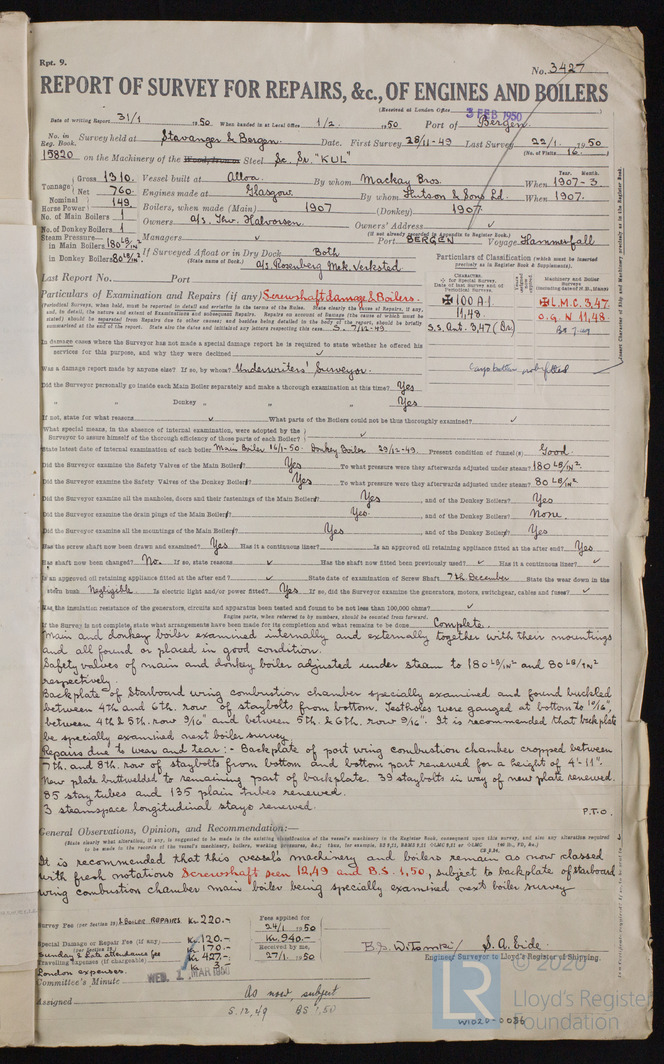 Rpt. 9.
No. 3427
REPORT OF SURVEY FOR REPAIRS, &c., OF ENGINES AND BOILERS
(Received at London Office 3 FEB 1950
Date of writing Report 31/1 1950 When handed in at Local Office 1/2. 1950 Port of Bergen.
No. in Reg. Book. Survey held at Stavanger & Bergen. Date. First Survey 28/11-49 Last Survey 22/1. 1950
15820 on the Machinery of the Wood, Iron or Steel Sc. Sr. "KUL" (No. of Visits 16.)
Tonnage Gross 1310. Vessel built at Alloa. By whom Mackay Bros. Year. Month. When 1907-3.
Net 760. Engines made at Glasgow. By whom Hutson & Sons Ld. When 1907.
Nominal Horse Power 149. Boilers, when made (Main) 1907 (Donkey) 1907.
No. of Main Boilers 1 Owners A/s. Thv. Halvorsen. Owners' Address
(If not already recorded in Appendix to Register Book.)
No. of Donkey Boilers 1 Managers Port BERGEN Voyage Hammerfall
Steam Pressure in Main Boilers 180 LB/IN². If Surveyed Afloat or in Dry Dock Both
in Donkey Boilers 80 LB/IN². (State name of Dock.) A/s. Rosenberg Mek. Verksted
Particulars of Classification (which must be inserted precisely as in Register Book & Supplements).
Last Report No. Port
Particulars of Examination and Repairs (if any) Screwshaft damage & Boilers.
✠100 A.1. 11,48. S.S. Ant. 3,47 (Br)
✠L.M.C. 3,47. O.G.N 11,48.
BS 7.49
In damage cases where the Surveyor has not made a special damage report he is required to state whether he offered his
services for this purpose, and why they were declined
Was a damage report made by anyone else? If so, by whom? Underwriters' Surveyor.
Did the Surveyor personally go inside each Main Boiler separately and make a thorough examination at this time? Yes
" " Donkey " " " Yes
If not, state for what reasons What parts of the Boilers could not be thus thoroughly examined?
What special means, in the absence of internal examination, were adopted by the
Surveyor to assure himself of the thorough efficiency of those parts of each Boiler?
State latest date of internal examination of each boiler Main Boiler 16/1-50. Donkey Boiler 29/12-49. Present condition of funnel(s) Good.
Did the Surveyor examine the Safety Valves of the Main Boiler? Yes To what pressure were they afterwards adjusted under steam? 180 LB/IN²
Did the Surveyor examine the Safety Valves of the Donkey Boiler? Yes To what pressure were they afterwards adjusted under steam? 80 LB/IN²
Did the Surveyor examine all the manholes, doors and their fastenings of the Main Boiler? Yes, and of the Donkey Boilers? Yes
Did the Surveyor examine the drain plugs of the Main Boiler? Yes, and of the Donkey Boilers? None.
Did the Surveyor examine all the mountings of the Main Boiler? Yes, and of the Donkey Boilers? Yes
Has the screw shaft now been drawn and examined? Yes Has it a continuous liner? Is an approved oil retaining appliance fitted at the after end? Yes
Has shaft now been changed? No. If so, state reasons Has the shaft now fitted been previously used? Has it a continuous liner?
Is an approved oil retaining appliance fitted at the after end? State date of examination of Screw Shaft 7th December State the wear down in the
stern bush Negligible. Is electric light and/or power fitted? Yes If so, did the Surveyor examine the generators, motors, switchgear, cables and fuses?
Has the insulation resistance of the generators, circuits and apparatus been tested and found to be not less than 100,000 ohms?
Engine parts, when referred to by numbers, should be counted from forward.
If the Survey is not complete, state what arrangements have been made for its completion and what remains to be done Complete.
Main and donkey boiler examined internally and externally together with their mountings
and all found or placed in good condition.
Safety valves of main and donkey boiler adjusted under steam to 180 LB/IN² and 80 LB/IN²
respectively.
Backplate of Starboard wing combustion chamber specially examined and found buckled
between 4th and 6th. row of staybolts from bottom. Testholes were gauged at bottom to 10/16",
between 4th & 5th. row 9/16" and between 5th. & 6th. row 9/16". It is recommended that backplate
be specially examined next boiler survey.
Repairs due to wear and tear:- Backplate of port wing combustion chamber cropped between
7th. and 8th. row of staybolts from bottom and bottom part renewed for a height of 4'-11".
New plate buttwelded to remaining part of backplate. 39 staybolts in way of new plate renewed.
85 stay tubes and 135 plain tubes renewed.
3 steamspace longitudinal stays renewed.
P.T.O.
General Observations, Opinion, and Recommendation:—
It is recommended that this vessels machinery and boilers remain as now classed
with fresh notations Screwshaft seen 12,49 and B.S. 1,50, subject to backplate of starboard
wing combustion chamber main boiler being specially examined next boiler survey
Survey Fee (per Section 29) & BOILER REPAIRS Kr. 220.- Fees applied for 24/1 1950
Special Damage or Repair Fee (if any) Kr. 120.- Kr. 940.-
Sunday & Late attendance fee 170.- Received by me,
Travelling expenses (if chargeable) Kr. 427.- 27/1. 1950
London expenses. Kr. 3.-
S. A. Eide.
Engineer Surveyor to Lloyd's Register of Shipping.
Committee's Minute WED. 1 MAR 1950
Assigned As now subject
S.12,49 BS 1,50
© 2020
LR
Lloyd's Register
Foundation
W1020-0036